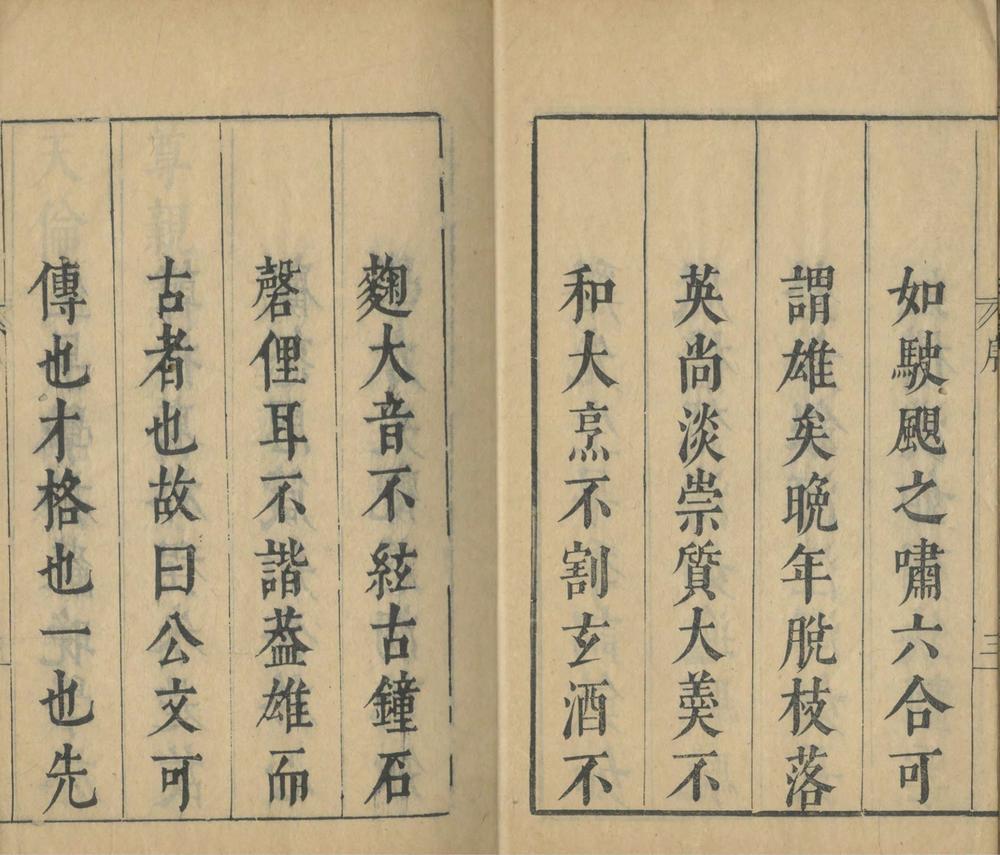 如駛颶之嘯六合可
謂雄矣晚年脫枝落
英尚淡崇質大羹不
和大烹不割玄酒不
麴大音不絃古鐘石
磬俚耳不諧葢雄而
古者也故曰公文可
傳也才格也一也先
序
三